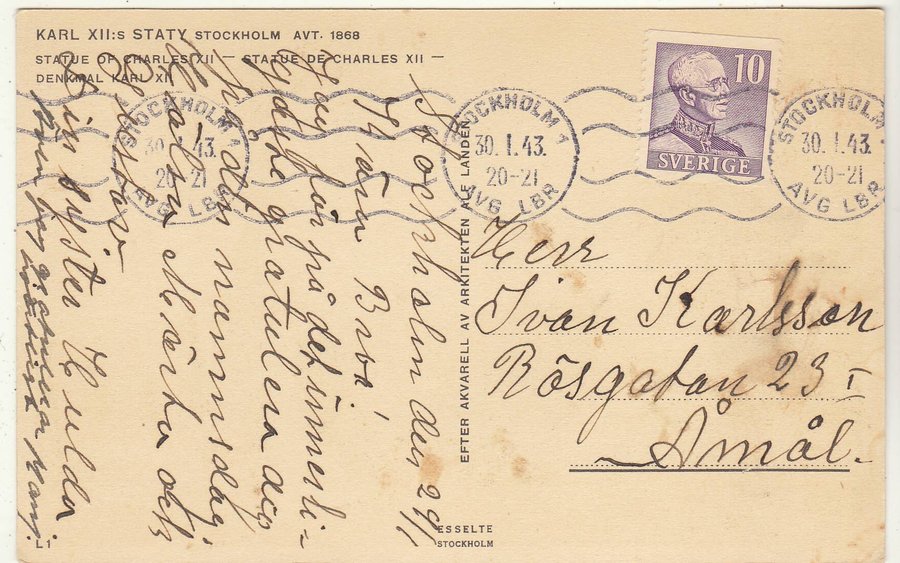 KARL XII:s STATY STOCKHOLM AVT. 1868
STATUE OF CHARLES XII — STATUE DE CHARLES XII —
DENKMAL KARL XII
Stockholm den 29/1
Kära Bror
Jag får på det ömmeli-
gaste gratulera dig
på din namnsdag
Hälsa Märta och
Gustav
Din syster Hulda
EFTER AKVARELL AV ARKITEKTEN ALF LANDÉN
10
SVERIGE
STOCKHOLM 1
30. 1. 43.
20-21
AVG LBR
STOCKHOLM 1
30. 1. 43.
20-21
AVG LBR
STOCKHOLM 1
30. 1. 43.
20-21
AVG LBR
Herr
Ivan Karlsson
Rösgatan 23
Åmål.
ESSELTE
STOCKHOLM
L1